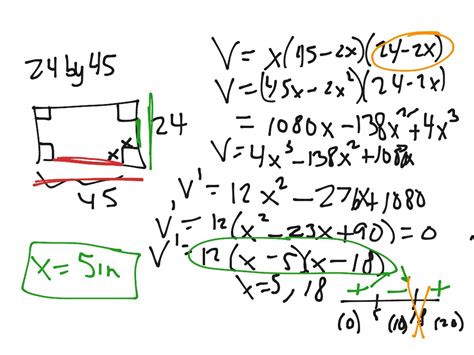 24 by 45
24
x
x
45
x = 5in
V = x(45-2x)(24-2x)
V = (45x-2x²)(24-2x)
= 1080x-138x²+4x³
V = 4x³-138x²+1080x
V' = 12x²-276x+1080
V' = 12(x²-23x+90) = 0
V' = 12(x-5)(x-18)
x = 5, 18
+ - +
5 18
(0) (10) (20)